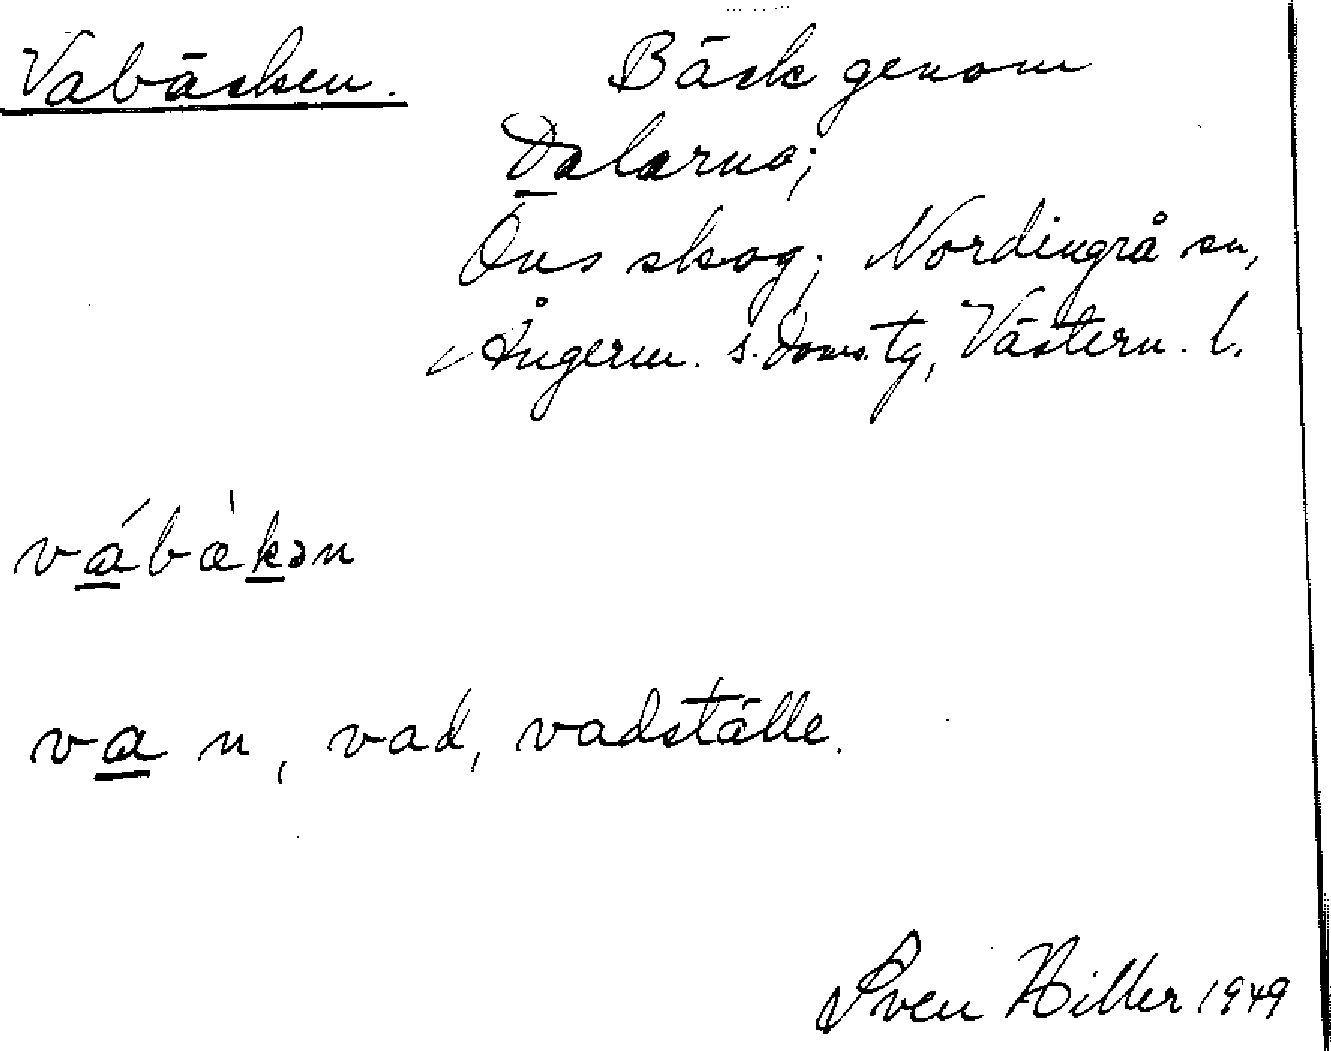 Vabäcken. Bäck genom
Dalarna;
Öns skog; Nordingrå sn,
Ångerm. s. doms. tg, Västern. l.
vábæ̀kən
va n, vad, vadställe.
Sven Hiller 1949